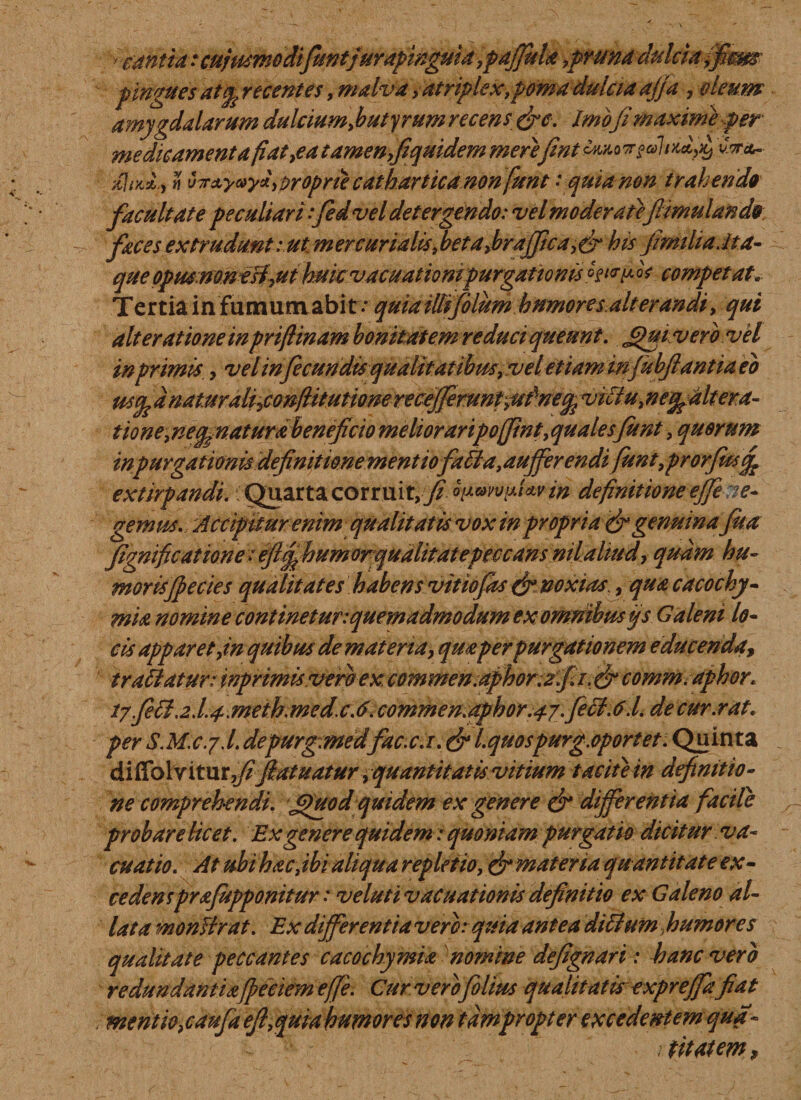 cantia: cujusmodi sunt jura pinguia, passulæ, pruna dulcia, ficus
pingues atq; recentes, malva, atriplex, poma dulcia assa, oleum
amygdalarum dulcium, butyrum recens &c. Imò si maximè per
medicamenta fiat, ea tamen, siquidem merè sint ἐκκοπρωτικὰ, κ̀ ὑπα-
κτικὰ, ἢ ὑπαγωγὰ, propriè cathartica non sunt: quia non trahendo
facultate peculiari: sed vel detergendo: vel moderatè stimulando
fæces extrudunt: ut mercurialis, beta, brassica, & his similia. Ita-
que opus non est, ut huic vacuationi purgationis ὁρισμὸς competat.
Tertia in fumum abit: quia illi solùm humores alterandi, qui
alteratione in pristinam bonitatem reduci queunt. Qui verò vel
in primis, vel in secundis qualitatibus, vel etiam in substantia eò
usq; à naturali constitutione recesserunt, ut neq; victu, neq; altera-
tione, neq; naturæ beneficio meliorari possint, quales sunt, quorum
in purgationis definitione mentio facta, auferendi sunt, prorsusq;
extirpandi. Quarta corruit, si ὁμωνυμίαν in definitione esse ne-
gemus. Accipitur enim qualitatis vox in propria & genuina sua
significatione: estq; humor qualitate peccans nil aliud, quàm hu-
moris species qualitates habens vitiosas & noxias, quæ cacochy-
miæ nomine continetur: quemadmodum ex omnibus ijs Galeni lo-
cis apparet, in quibus de materia, quæ per purgationem educenda,
tractatur: inprimis verò ex commen. aphor. 2. s. 1. & comm. aphor.
17. sect. 2. l. 4. meth. med. c. 6. commen. aphor. 47. sect. 6. l. de cur. rat.
per S. M. c. 7. l. de purg. med fac. c. 1. & l. quos purg. oportet. Quinta
dissolvitur, si statuatur, quantitatis vitium tacitè in definitio-
ne comprehendi. Quod quidem ex genere & differentia facilè
probare licet. Ex genere quidem: quoniam purgatio dicitur va-
cuatio. At ubi hæc, ibi aliqua repletio, & materia quantitate ex-
cedens præsupponitur: veluti vacuationis definitio ex Galeno al-
lata monstrat. Ex differentia verò: quia antea dictum, humores
qualitate peccantes cacochymiæ nomine designari: hanc verò
redundantiæ speciem esse. Cur verò solius qualitatis expressa fiat
mentio, causa est, quia humores non tàm propter excedentem qua-
titatem,